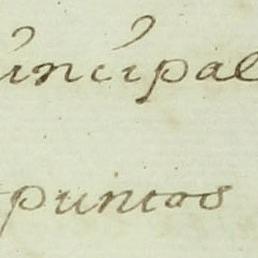 incipal
puntos